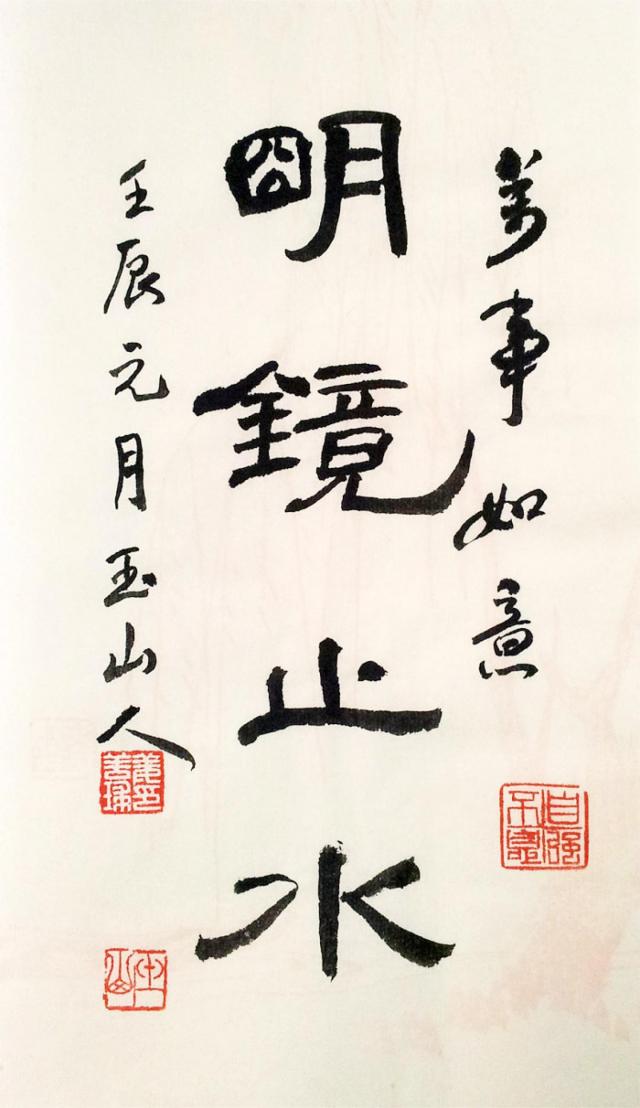 萬事如意
自强不息
明鏡止水
壬辰元月玉山人